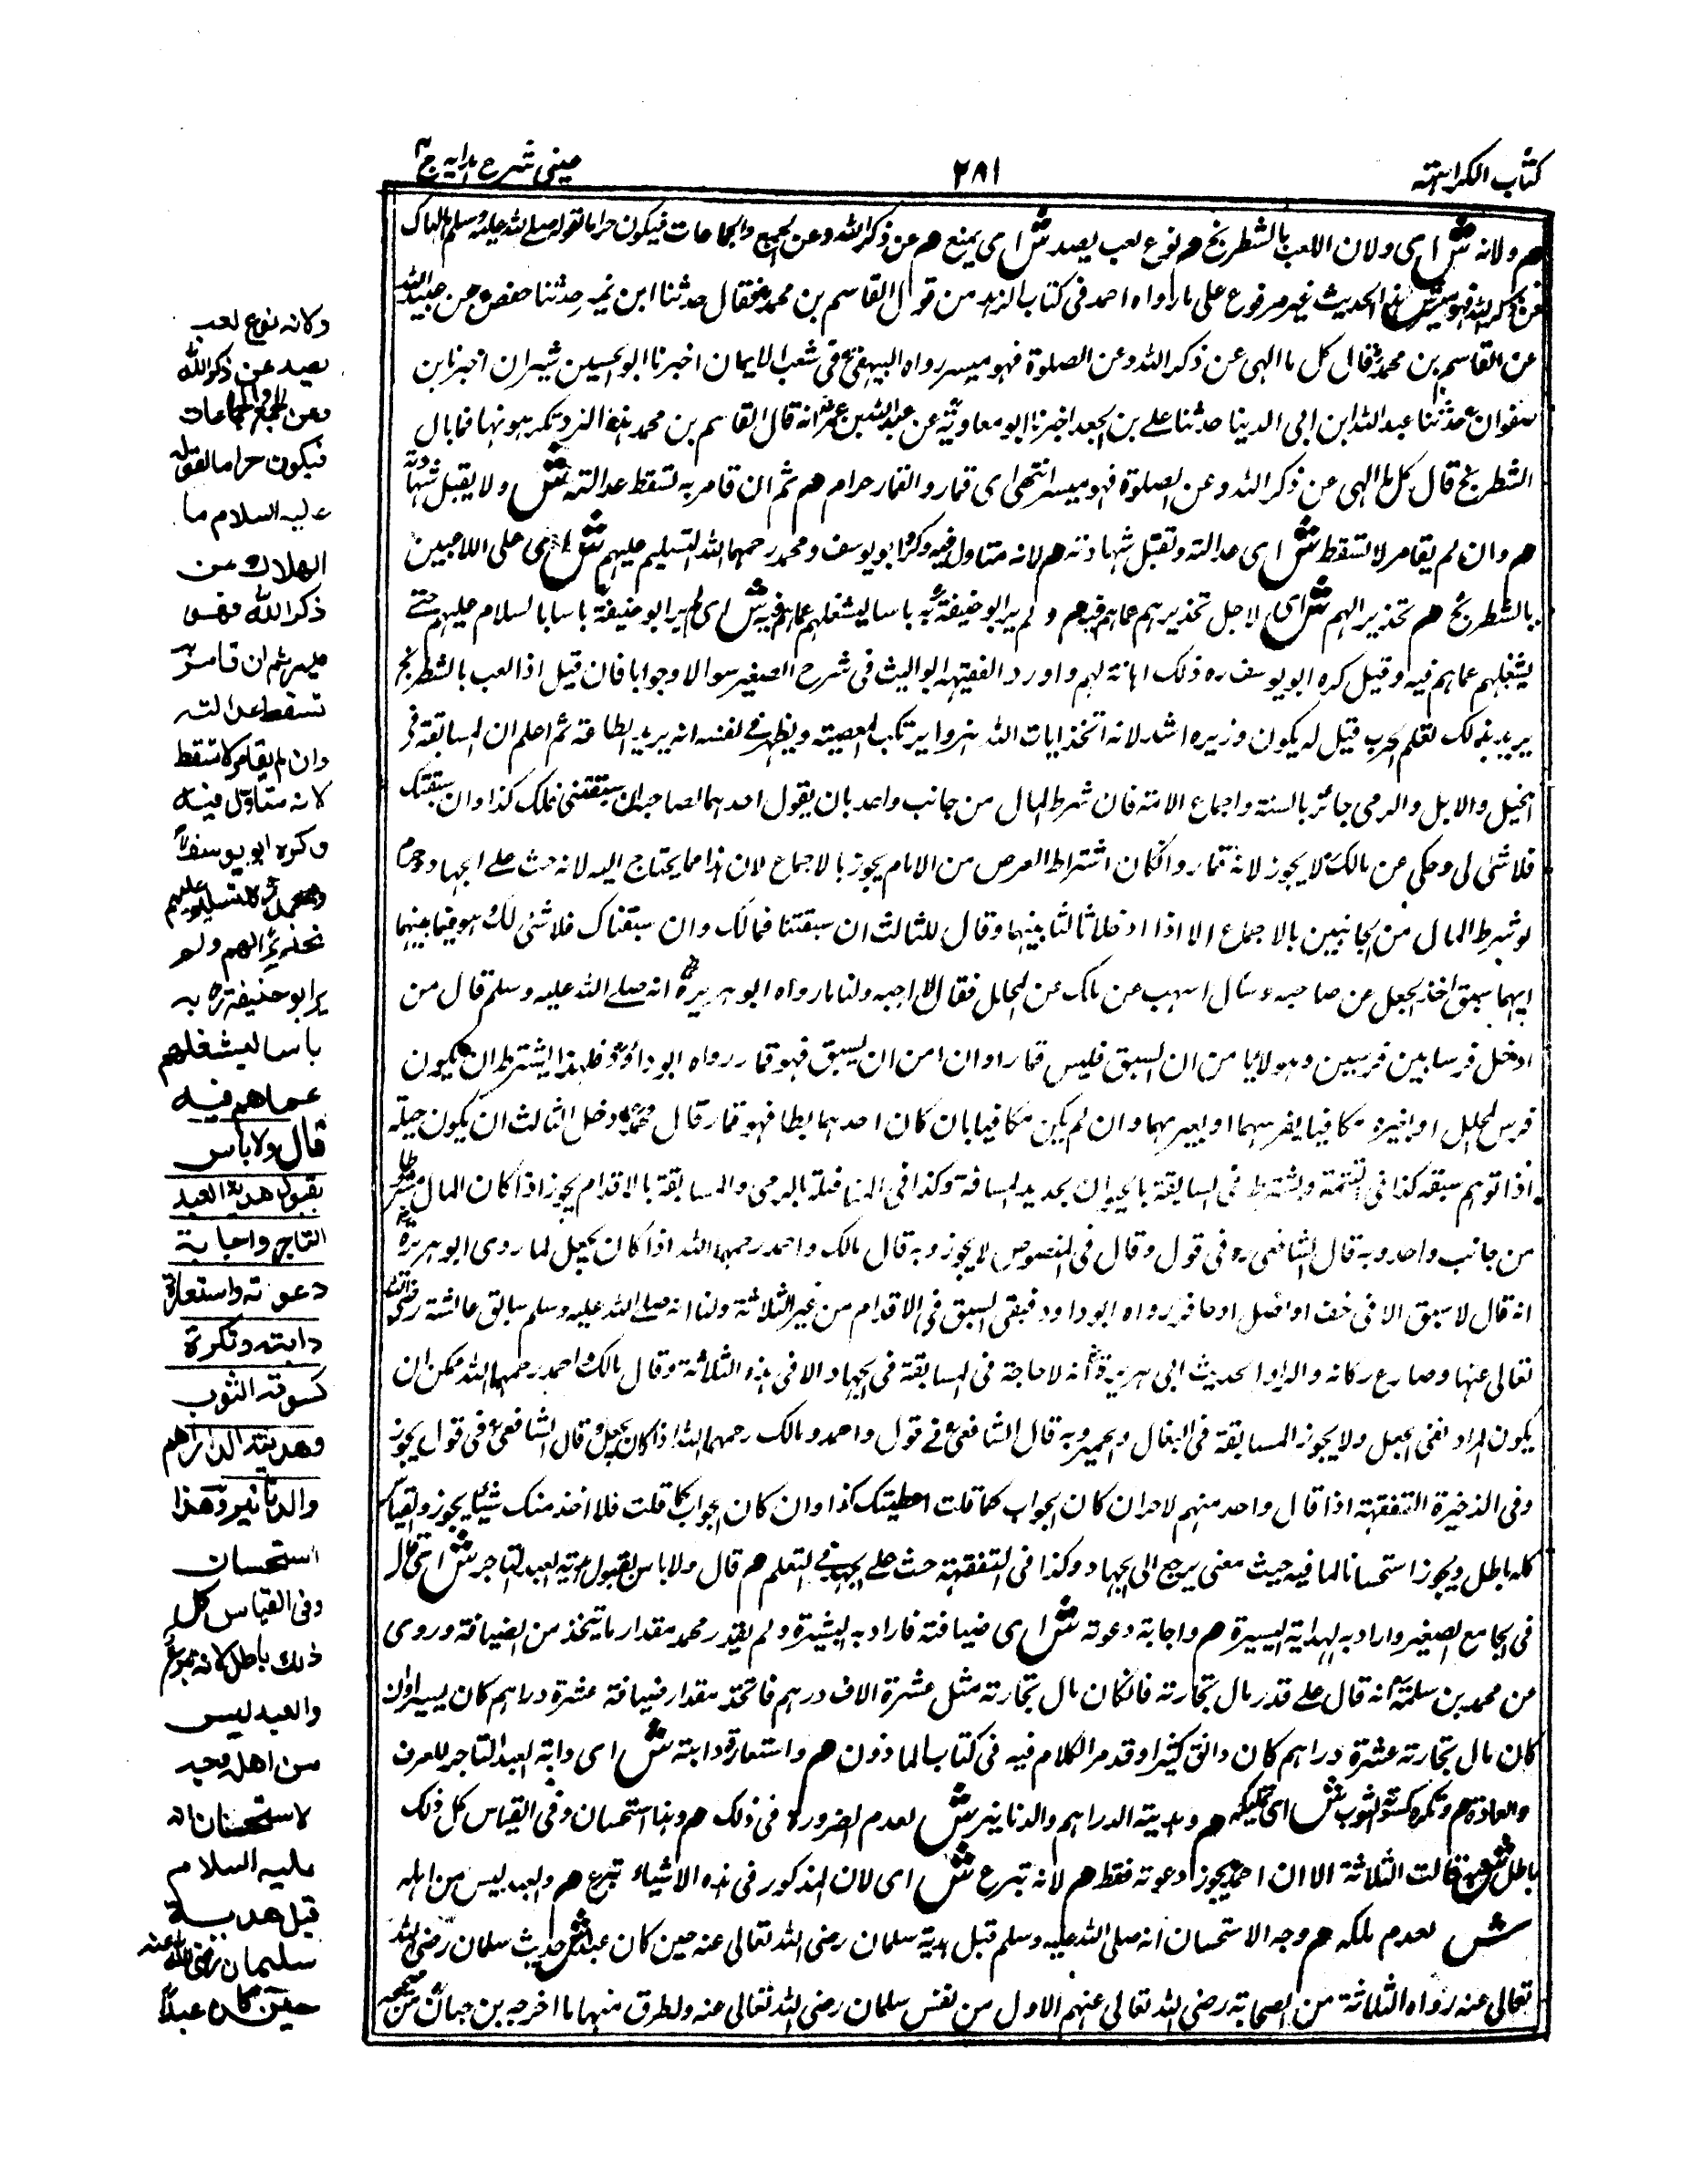 كتاب الكراهية
٢٨١
عيني شرح هدايه ج ٤
هم ولانه ش اى ولان اللعب بالشطرنج هم نوع لعب يصد ش اى يمنع هم عن ذكر الله وعن الجمع والجماعات فيكون حراما لقوله صلے الله عليه وسلم ما الهاك
عن ذكر الله فهو ميسر ش هذا الحديث غير مرفوع على ما رواه احمد فى كتاب الزهد من قول القاسم بن محمد فقال حدثنا ابن نمير حدثنا حفص عن عبيد الله
عن القاسم بن محمد قال كل ما الهى عن ذكر الله وعن الصلوة فهو ميسر رواه البيهقى فى شعب الايمان اخبرنا ابو الحسين بن بشران اخبرنا ابن
صفوان حدثنا عبد الله ابن ابى الدنيا حدثنا على بن الجعد اخبرنا ابو معاوية عن عبد الله بن عمر انه قال القاسم بن محمد هذا النرد تكرهونها فما بال
الشطرنج قال كل ما الهى عن ذكر الله وعن الصلوة فهو ميسر انتهى اى قمار والقمار حرام هم ثم ان قامر به تسقط عدالته ش ولا يقبل شهادته
هم وان لم يقامر لا تسقط ش اى عدالته وتقبل شهادته هم لانه متاول فيه وكره ابو يوسف ومحمد رحمهما الله التسليم عليهم ش اى على اللاعبين
بالشطرنج هم تحذيرا لهم ش اى لاجل تحذيرهم عما هم فيه هم ولم ير ابو حنيفة به باسا ليشغلهم عما هم فيه ش اى لم ير ابو حنيفة باسا بالسلام عليهم حتے
يشغلهم عما هم فيه وقيل كره ابو يوسف ره ذلك اهانة لهم واورد الفقيه ابو الليث فى شرح الصغير سوالا وجوابا فان قيل اذا لعب بالشطرنج
يريد بذلك تعلم الحرب قيل له يكون وزيره اشد لانه اتخذ ايات الله هزوا يرتكب المعصية ويظهر فے نفسه انه يريد الطاعة ثم اعلم ان المسابقة فى
الخيل والابل والرمى جائز بالسنة واجماع الامة فان شرط المال من جانب واحد بان يقول احدهما لصاحبه ان سبقتنى فلك كذا وان سبقتك
فلا شئ لى وحكى عن مالك لا يجوز لانه قمار وان كان اشتراط العرض من الامام يجوز بالاجماع لان هذا مما يحتاج اليه لانه حث على الجهاد وحرم
لو شرط المال من الجانبين بالاجماع الا اذا ادخلا ثالثا بينهما وقال للثالث ان سبقتنا فمالك وان سبقناك فلا شئ لك هو فيما بينهما
ايهما سبق اخذ الجعل عن صاحبه وسأل اسهب عن مالك عن المحلل فقال لا احبه ولنا ما رواه ابو هريرة انه صلے الله عليه وسلم قال من
ادخل فرسا بين فرسين وهو لا يامن ان السبق فليس قمارا وان امن ان يسبق فهو قمار رواه ابو داؤد فلهذا يشترط ان يكون
فرس المحلل او بعيره مكافيا بفرسهما او بعيرهما وان لم يكن مكافيا بان كان احدهما ابطا فهو قمار قال محمد ادخل الثالث ان يكون حيلة
اذا توهم سبقه كذا فى التتمة ويشترط فى المسابقة بالحيوان تحديد المسافة وكذا فى المناضلة بالرمى والمسابقة بالاقدام يجوز اذا كان المال مشروطا
من جانب واحد وبه قال الشافعى ره فى قول وقال فى المنصوص لا يجوز وبه قال مالك واحمد رحمهما الله اذا كان بجعل لما روى ابو هريرة
انه قال لا سبق الا فى خف او نصل او حافر رواه ابو داود فبقى السبق فى الاقدام من غير الثلاثة ولنا انه صلے الله عليه وسلم سابق عائشة رضى الله
تعالى عنها وصارع ركانه والمراد الحديث ابى هريرة انه لا حاجة فى المسابقة فى الجهاد الا فى هذه الثلاثة وقال مالك واحمد رحمهما الله ممكن ان
يكون المراد نفى الجعل ولا يجوز المسابقة فى البغال والحمير وبه قال الشافعى فے قول واحمد ومالك رحمهما الله اذا كان بجعل وقال الشافعى فى قول يجوز
وفى الذخيرة التفقهة اذا قال واحد منهم لاخر ان كان الجواب كما قلت اعطيتك كذا وان كان الجواب كما قلت فلا اخذ منك شيئا يجوز والقياس
كله باطل ويجوز استحسانا لما فيه حيث معنى يرجع الى الجهاد وكذا فى التفقهة حث على الجهد فے التعلم هم قال ولا باس بقبول هدية العبد التاجر ش اى قال
فى الجامع الصغير واراد به الهداية اليسيرة هم واجابة دعوته ش اى ضيافته فاراد به اليسيرة ولم يقدر محمد مقدار ما يتخذ من الضيافة وروى
عن محمد بن سلمة انه قال على قدر مال تجارته فان كان مال تجارته مثل عشرة الاف درهم فاتخذ مقدار ضيافة عشرة دراهم كان يسيرا وان
كان مال تجارته عشرة دراهم كان دانق كثيرا وقد مر الكلام فيه فى كتاب الماذون هم واستعارة دابته ش اى دابة العبد التاجر للعرف
والعادة هم وتكره كسوته الثوب ش اى تمليكه هم وهدية الدراهم والدنانير ش لعدم الضرورة فى ذلك هم وهذا استحسان وفى القياس كل ذلك
باطل ش وبه قالت الثلاثة الا ان احمد يجوز دعوته فقط هم لانه تبرع ش اى لان المذكور فى هذه الاشياء تبرع هم والعبد ليس من اهله
ش لعدم ملكه هم وجه الاستحسان انه صلى الله عليه وسلم قبل هدية سلمان رضى الله تعالى عنه حين كان عبدا ش حديث سلمان رضى الله
تعالى عنه رواه الثلاثة من الصحابة رضى الله تعالى عنهم الاول من نفس سلمان رضى الله تعالى عنه ولطرق منها ما اخرجه بن حبان من صحيحه
ولانه نوع لعب
يصد عن ذكر الله
وعن الجمع والجماعات
فيكون حراما لقوله
عليه السلام ما
الهاك عن
ذكر الله فهو
ميسر ثم ان قامر به
تسقط عدالته
وان لم يقامر لا تسقط
لانه متاول فيه
وكره ابو يوسف
ومحمد التسليم عليهم
تحذيرا لهم ولم
ير ابو حنيفة ره به
باسا ليشغلهم
عما هم فيه
قال ولا باس
بقبول هدية العبد
التاجر واجابة
دعوته واستعارة
دابته وتكره
كسوته الثوب
وهديته الدراهم
والدنانير وهذا
استحسان
وفى القياس كل
ذلك باطل لانه تبرع
والعبد ليس
من اهله وجه
الاستحسان انه
عليه السلام
قبل هدية
سلمان رضى الله عنه
حين كان عبدا